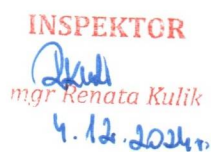 INSPEKTOR
mgr Renata Kulik
4.12.2024r.